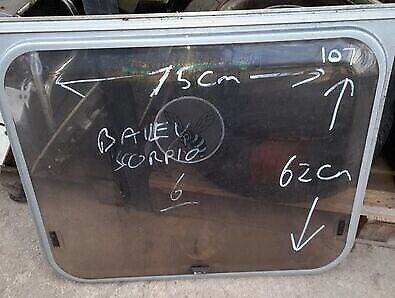 107
75cm
BAILEY
SCORPIO
6
62cm